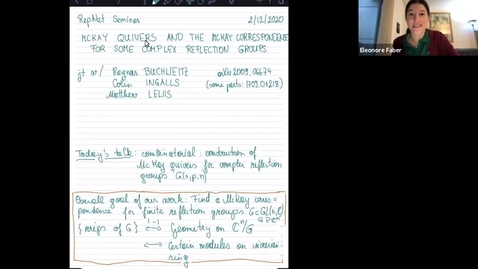 RepNet Seminar 2/12/2020
MCKAY QUIVERS AND THE MCKAY CORRESPONDENCE
FOR SOME COMPLEX REFLECTION GROUPS
jt w/ Ragnar BUCHWEITZ arXiv 2009.06674
Colin INGALLS (some parts: 1709.01218)
Matthew LEWIS
Today's talk: combinatorial: construction of
McKay quivers for complex reflection
groups G(r,p,n)
Overall goal of our work: Find a McKay corres=
pondence for finite reflection groups G ⊆ GL(n,ℂ)
{irreps of G} ⟷ Geometry on ℂⁿ/G
⟷ Certain modules on
ring
Eleonore Faber